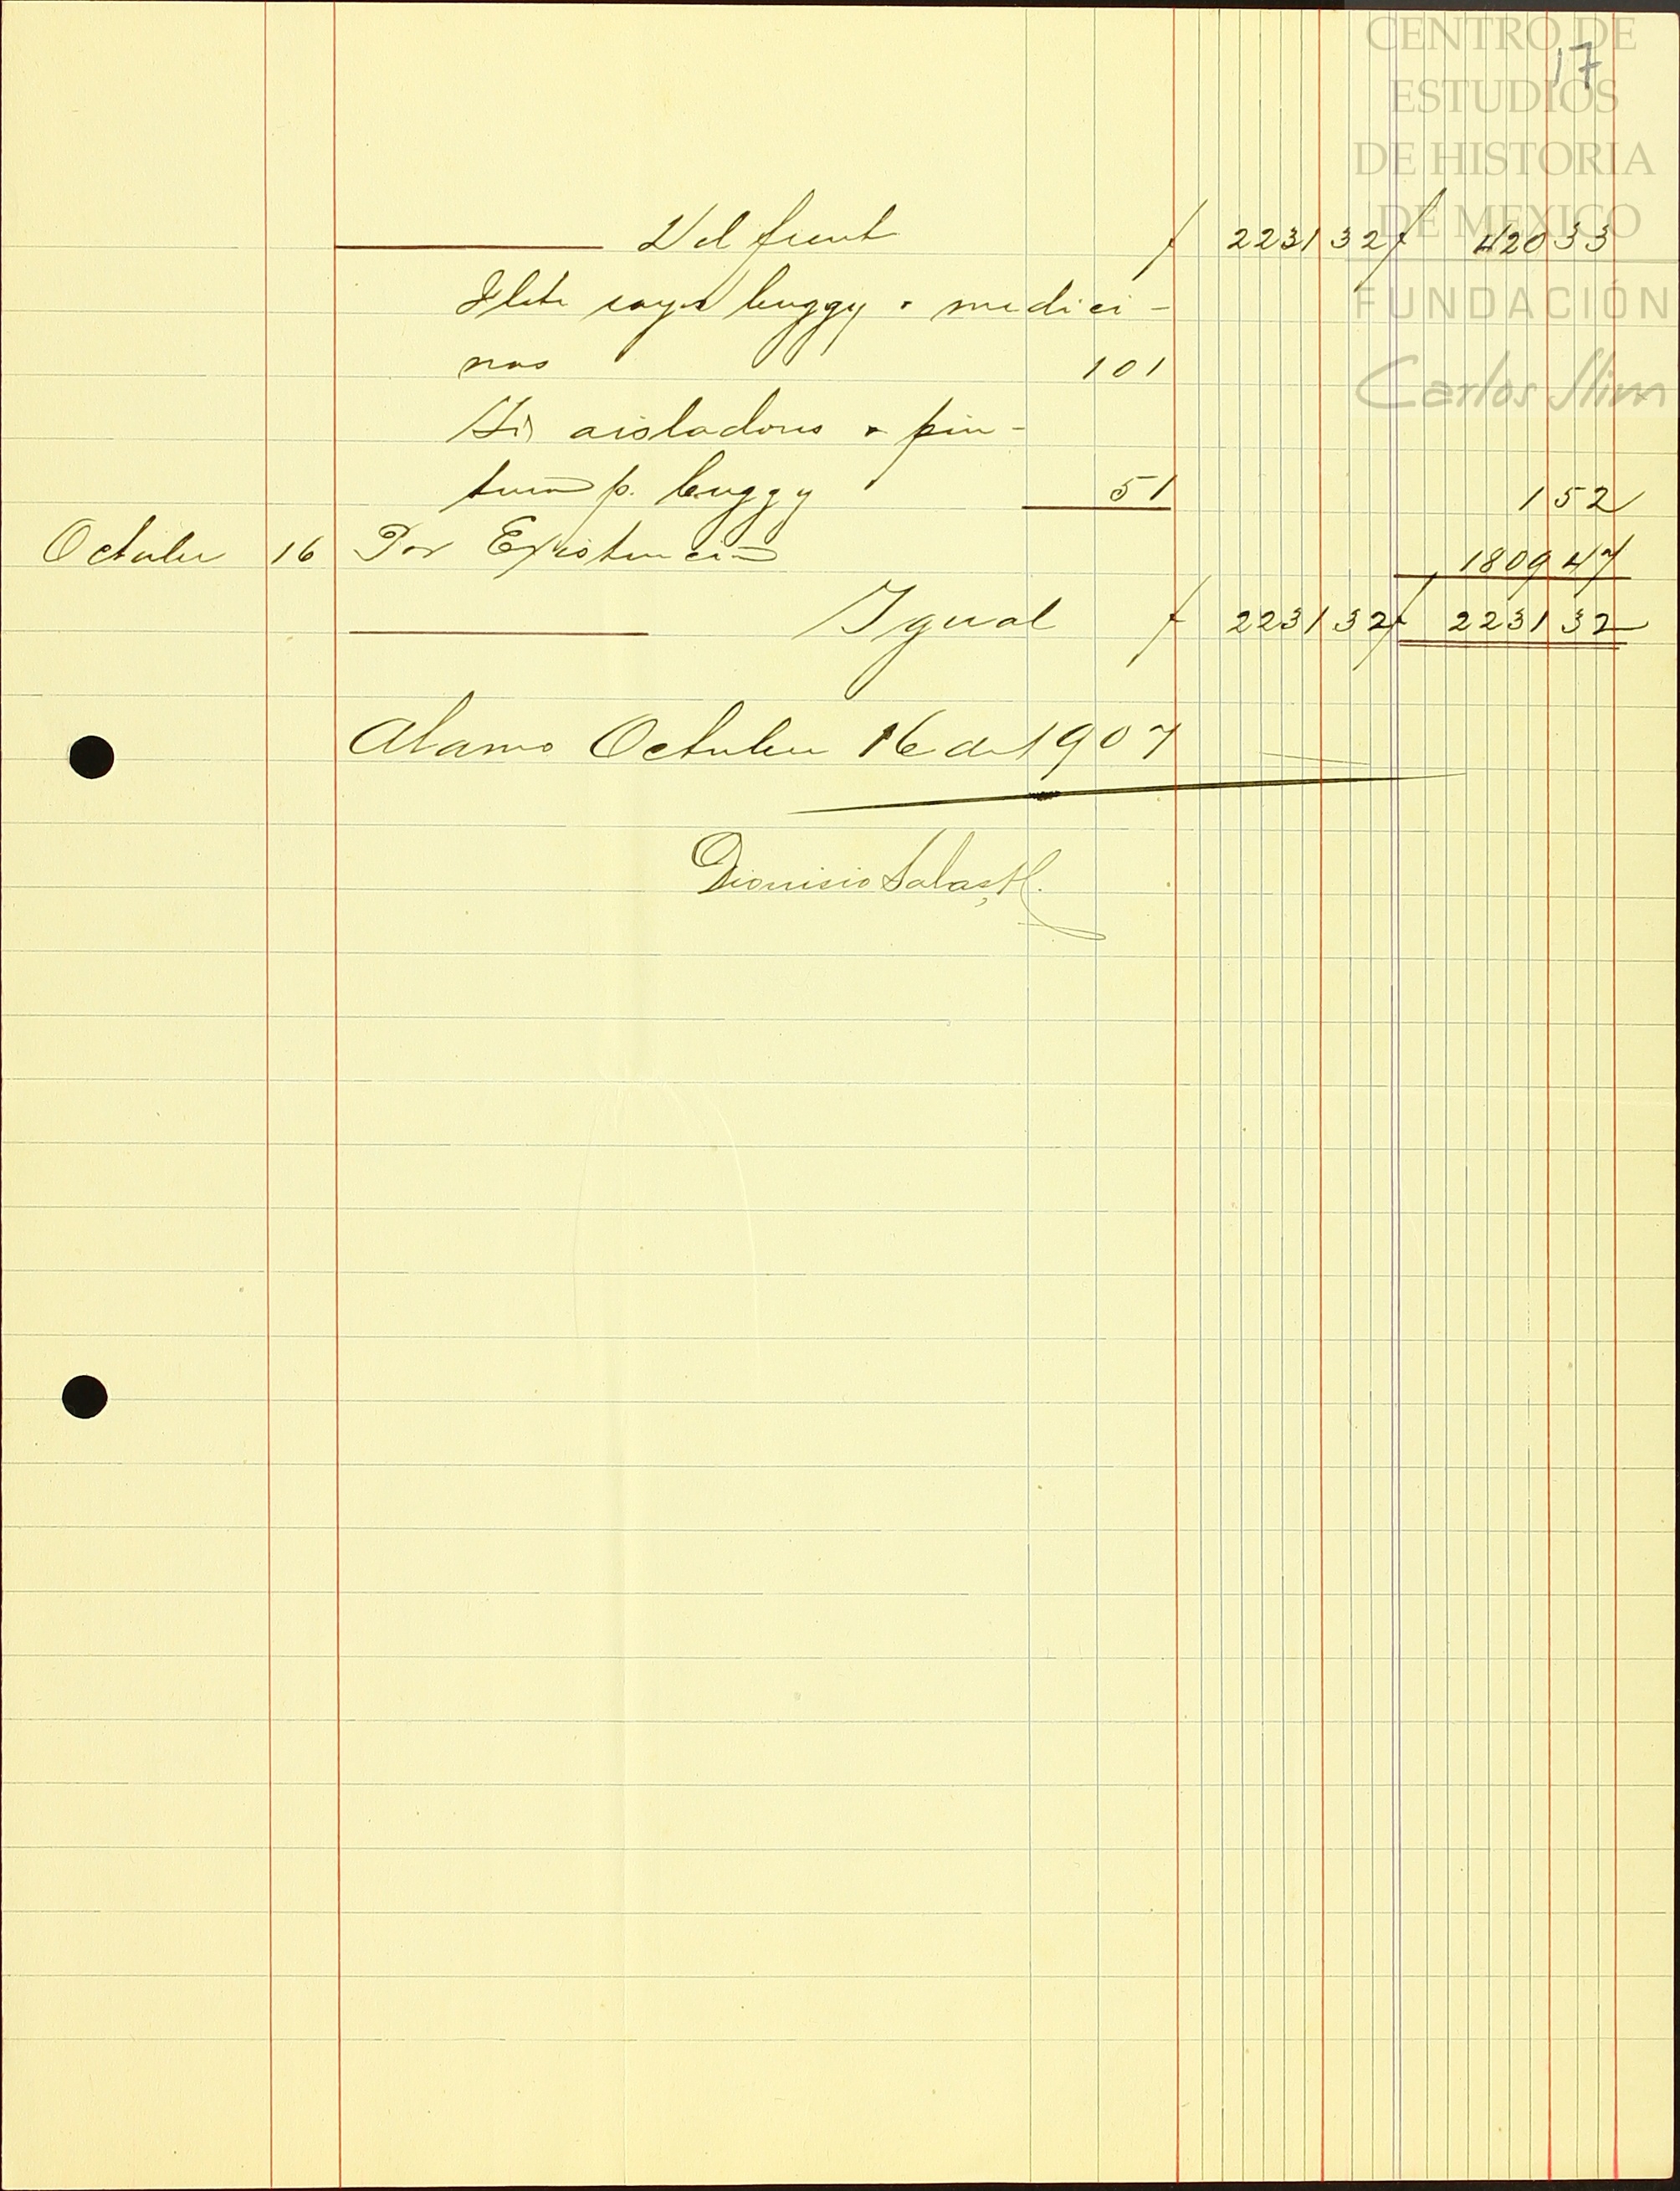 CENTRO DE
ESTUDIOS
DE HISTORIA
DE MEXICO
FUNDACIÓN
Carlos Slim
17
Del frente $ 2231 32 $ 420 33
Flete caja buggy y medici-
nas 1 01
Id aisladores y pin-
tura p. buggy 51 1 52
Octubre 16 Por Existencia 1809 47
Igual $ 2231 32 $ 2231 32
Alamo Octubre 16 de 1907
Dionisio Salas H.